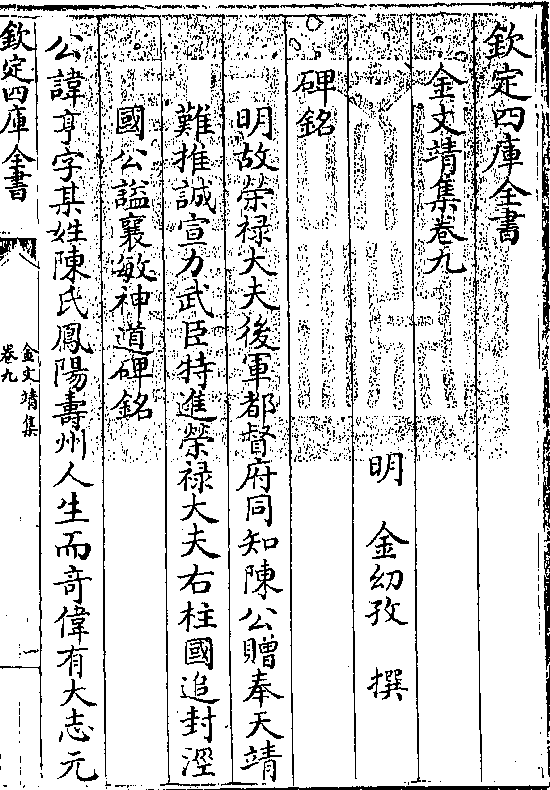 欽定四庫全書
金文靖集卷九
明 金幼孜 撰
碑銘
明故榮禄大夫後軍都督府同知陳公贈奉天靖
難推誠宣力武臣特進榮禄大夫右柱國追封涇
國公諡襄敏神道碑銘
公諱亨字某姓陳氏鳳陽壽州人生而奇偉有大志元
欽定四庫全書
金文靖集
卷九
一